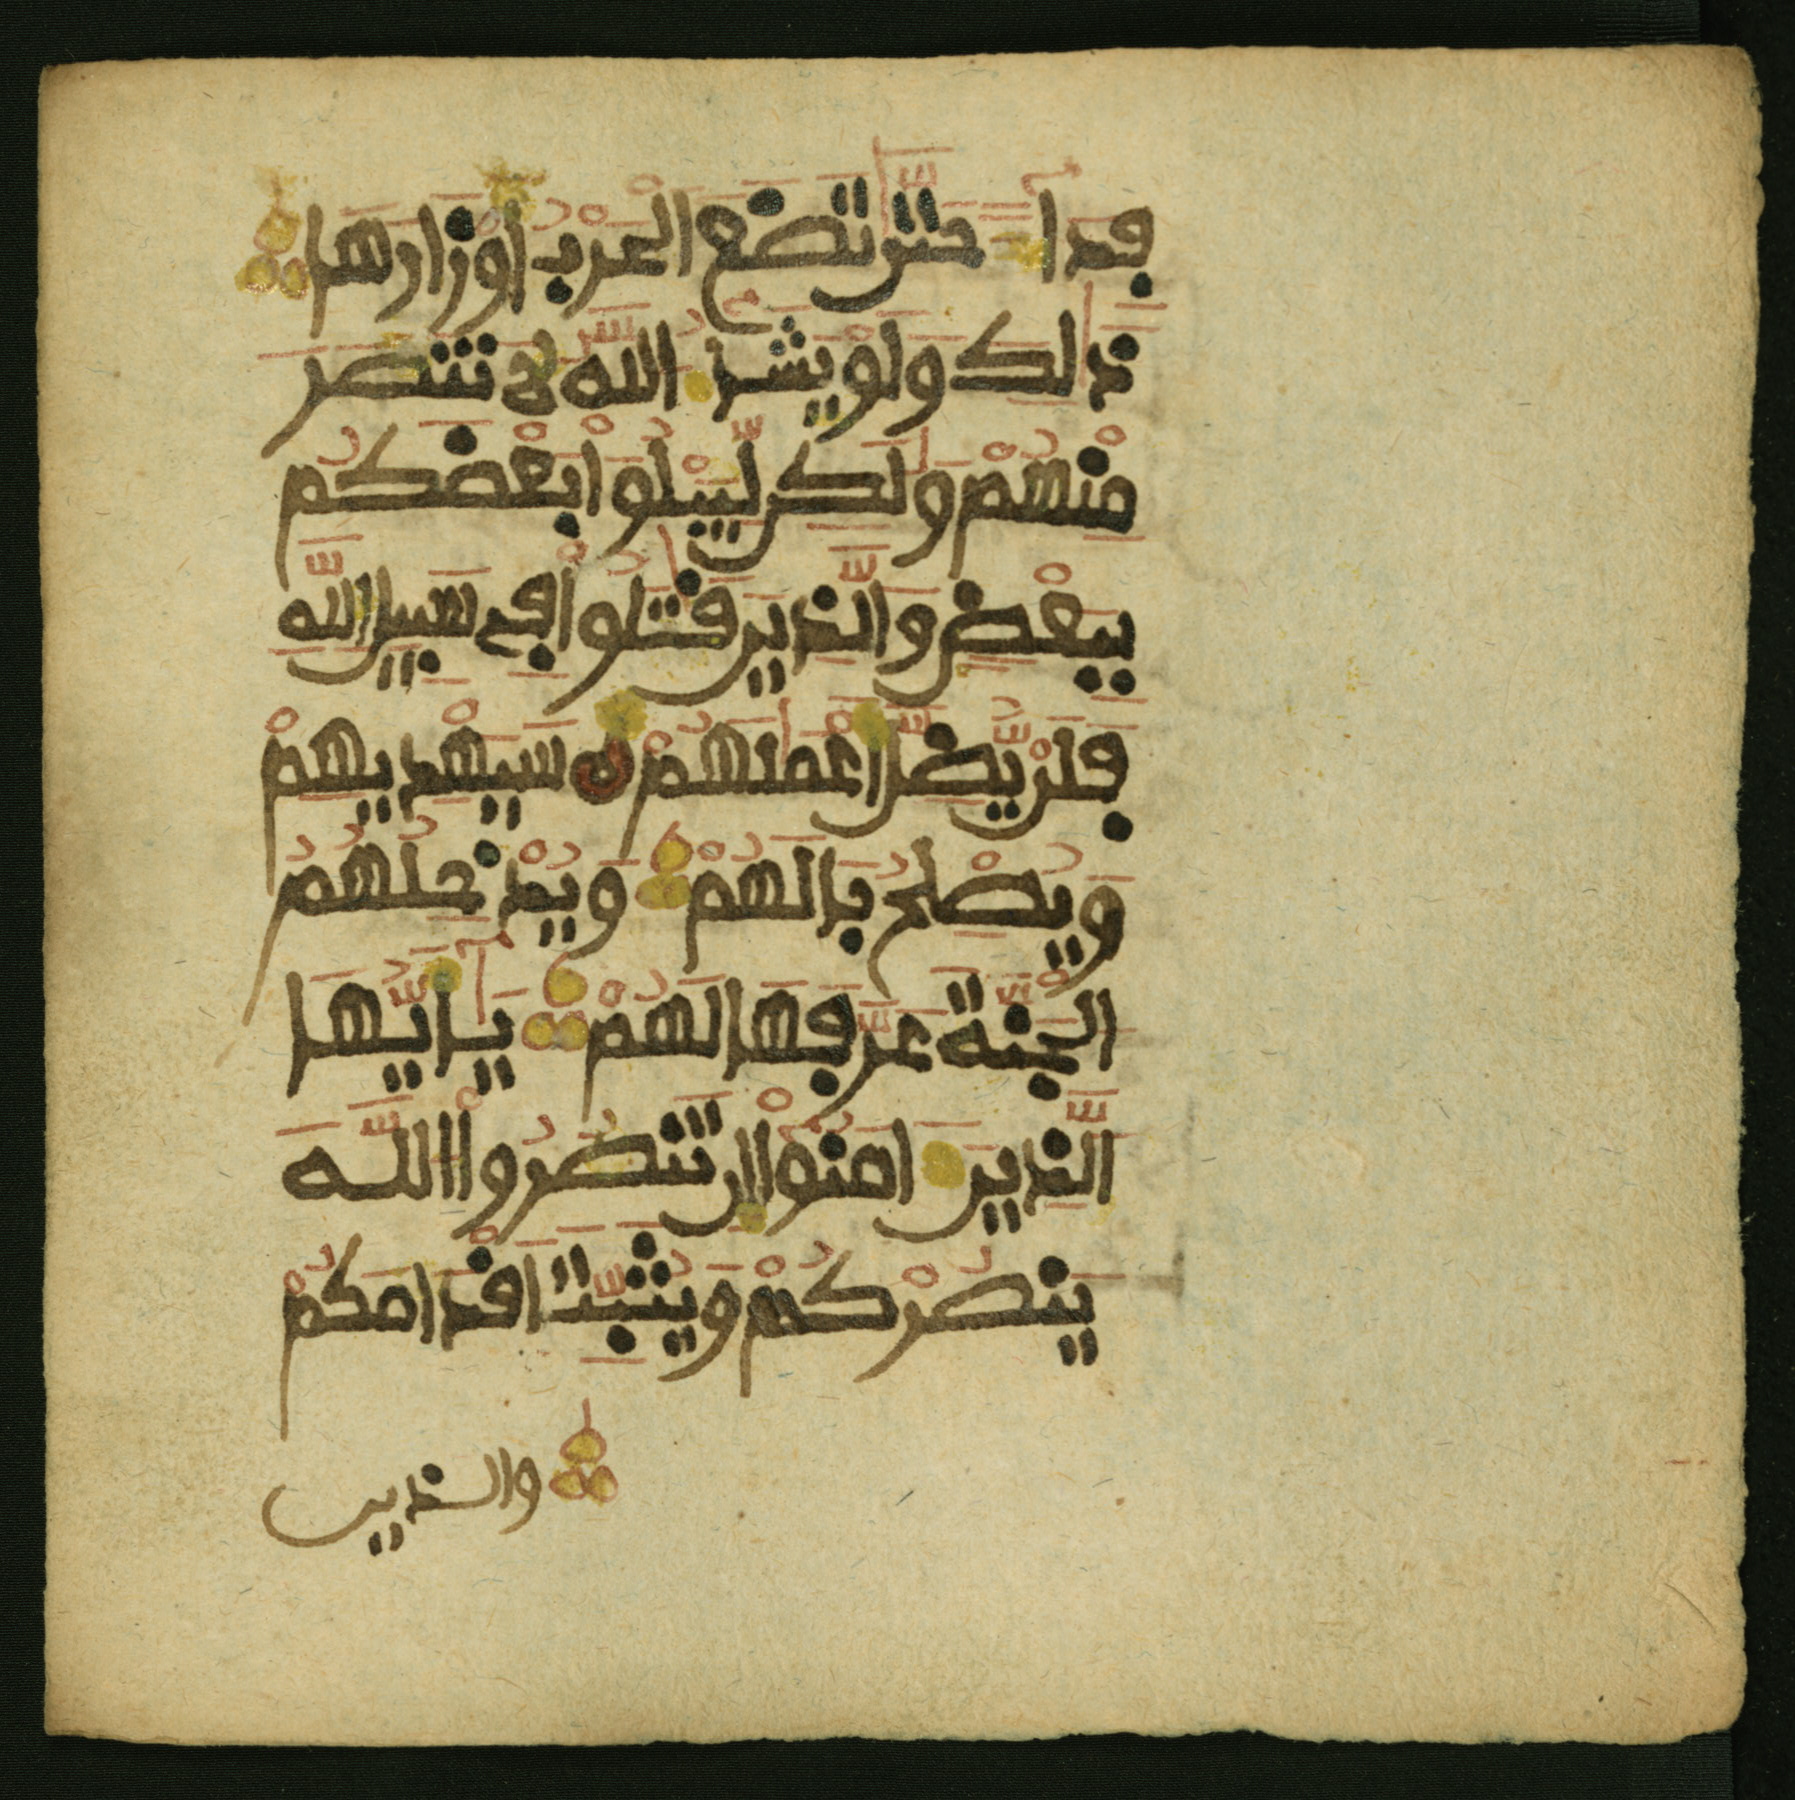 فِدَآءً حَتَّىٰ تَضَعَ الْحَرْبُ أَوْزَارَهَا
ذَٰلِكَ وَلَوْ يَشَآءُ اللَّهُ لَانتَصَرَ
مِنْهُمْ وَلَٰكِن لِّيَبْلُوَا بَعْضَكُم
بِبَعْضٍ وَالَّذِينَ قَٰتَلُوا فِي سَبِيلِ اللَّهِ
فَلَنْ يُّضِلَّ أَعْمَٰلَهُمْ ه سَيَهْدِيهِمْ
وَيُصْلِحُ بَالَهُمْ وَيُدْخِلُهُمُ
الْجَنَّةَ عَرَّفَهَا لَهُمْ يَآ أَيُّهَا
الَّذِينَ ءَامَنُوْا إِن تَنصُرُوا اللَّهَ
يَنصُرْكُمْ وَيُثَبِّتَ اَقْدَامَكُمْ
والذين